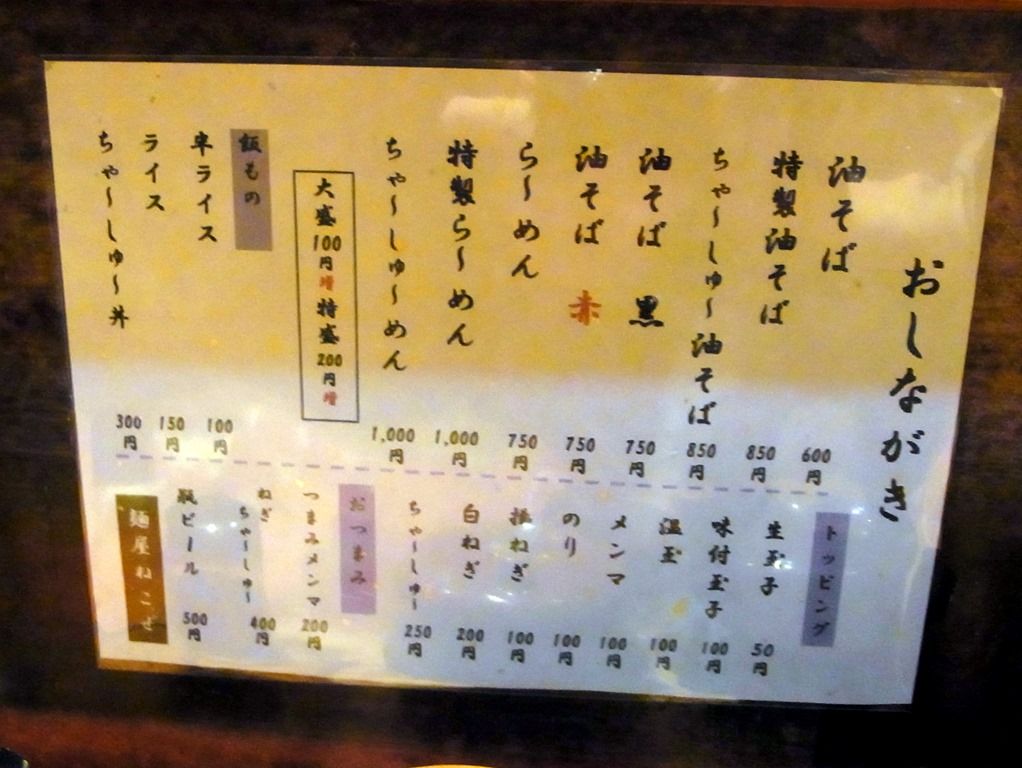 おしながき
油そば 600円
特製油そば 850円
ちゃ～しゅ～油そば 850円
油そば 黒 750円
油そば 赤 750円
ら～めん 750円
特製ら～めん 1,000円
ちゃ～しゅ～めん 1,000円
大盛100円増 特盛200円増
飯もの
半ライス 100円
ライス 150円
ちゃ～しゅ～丼 300円
トッピング
生玉子 50円
味付玉子 100円
温玉 100円
メンマ 100円
のり 100円
ねぎ 100円
白ねぎ 200円
ちゃ～しゅ～ 250円
おつまみ
つまみメンマ 200円
ねぎちゃ～しゅ～ 400円
瓶ビール 500円
麺屋ねこせ